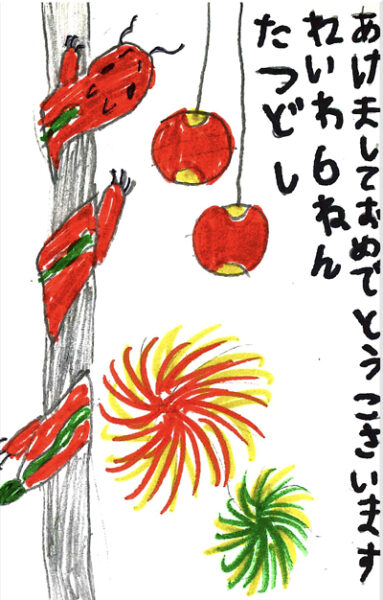 あけましておめでとうございます
れいわ6ねん
たつどし